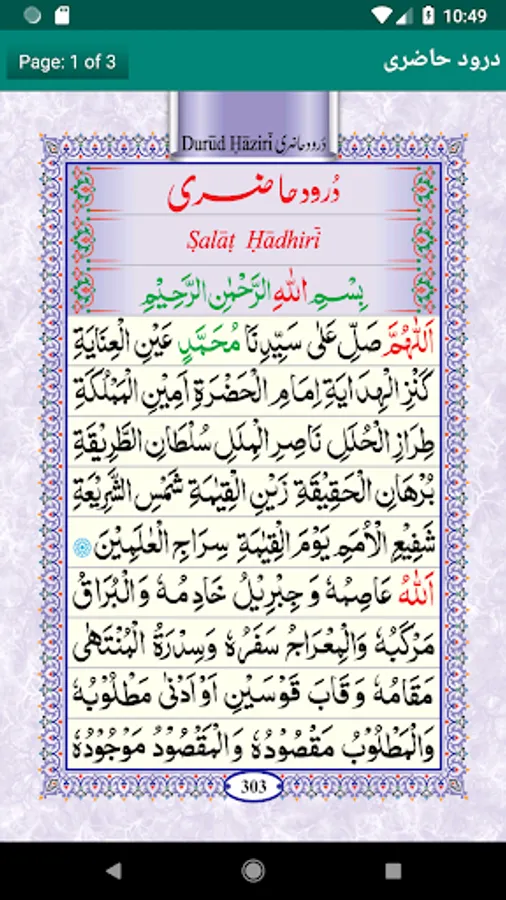 10:49
Page: 1 of 3
درود حاضری
Durūd Ḥāzirī دُرود حاضری
دُرود حاضری
Ṣalāṭ Ḥādhirī
بِسْمِ اللهِ الرَّحْمٰنِ الرَّحِيْمِ
اَللّٰهُمَّ صَلِّ عَلٰى سَيِّدِنَا مُحَمَّدٍ عَيْنِ الْعِنَايَةِ
كَنْزِ الْهِدَايَةِ اِمَامِ الْحَضْرَةِ اَمِيْنِ الْمَمْلَكَةِ
طِرَازِ الْحُلَلِ نَاصِرِ الْمِلَلِ سُلْطَانِ الطَّرِيْقَةِ
بُرْهَانِ الْحَقِيْقَةِ زَيْنِ الْقِيٰمَةِ شَمْسِ الشَّرِيْعَةِ
شَفِيْعِ الْاُمَمِ يَوْمَ الْقِيٰمَةِ سِرَاجِ الْعٰلَمِيْنَ
اَللهُ عَاصِمُهٗ وَ جِبْرِيْلُ خَادِمُهٗ وَالْبُرَاقُ
مَرْكَبُهٗ وَالْمِعْرَاجُ سَفَرُهٗ وَسِدْرَةُ الْمُنْتَهٰى
مَقَامُهٗ وَقَابَ قَوْسَيْنِ اَوْ اَدْنٰى مَطْلُوْبُهٗ
وَالْمَطْلُوْبُ مَقْصُوْدُهٗ وَالْمَقْصُوْدُ مَوْجُوْدُهٗ
303